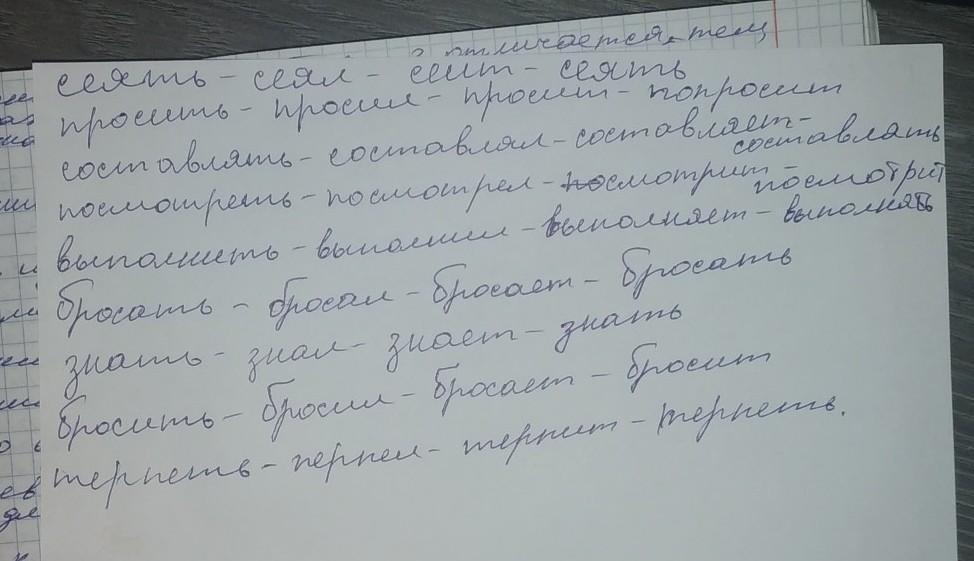 отличается, тем
сеять - сеял - сеит - сеять
просить - просил - просит - попросит
составлять - составлял - составляет -
составлять
посмотреть - посмотрел - посмотрит -
посмотрит
выполнить - выполнил - выполняет - выполнять
бросать - бросал - бросает - бросать
знать - знал - знает - знать
бросить - бросил - бросает - бросит
терпеть - терпел - терпит - терпеть.